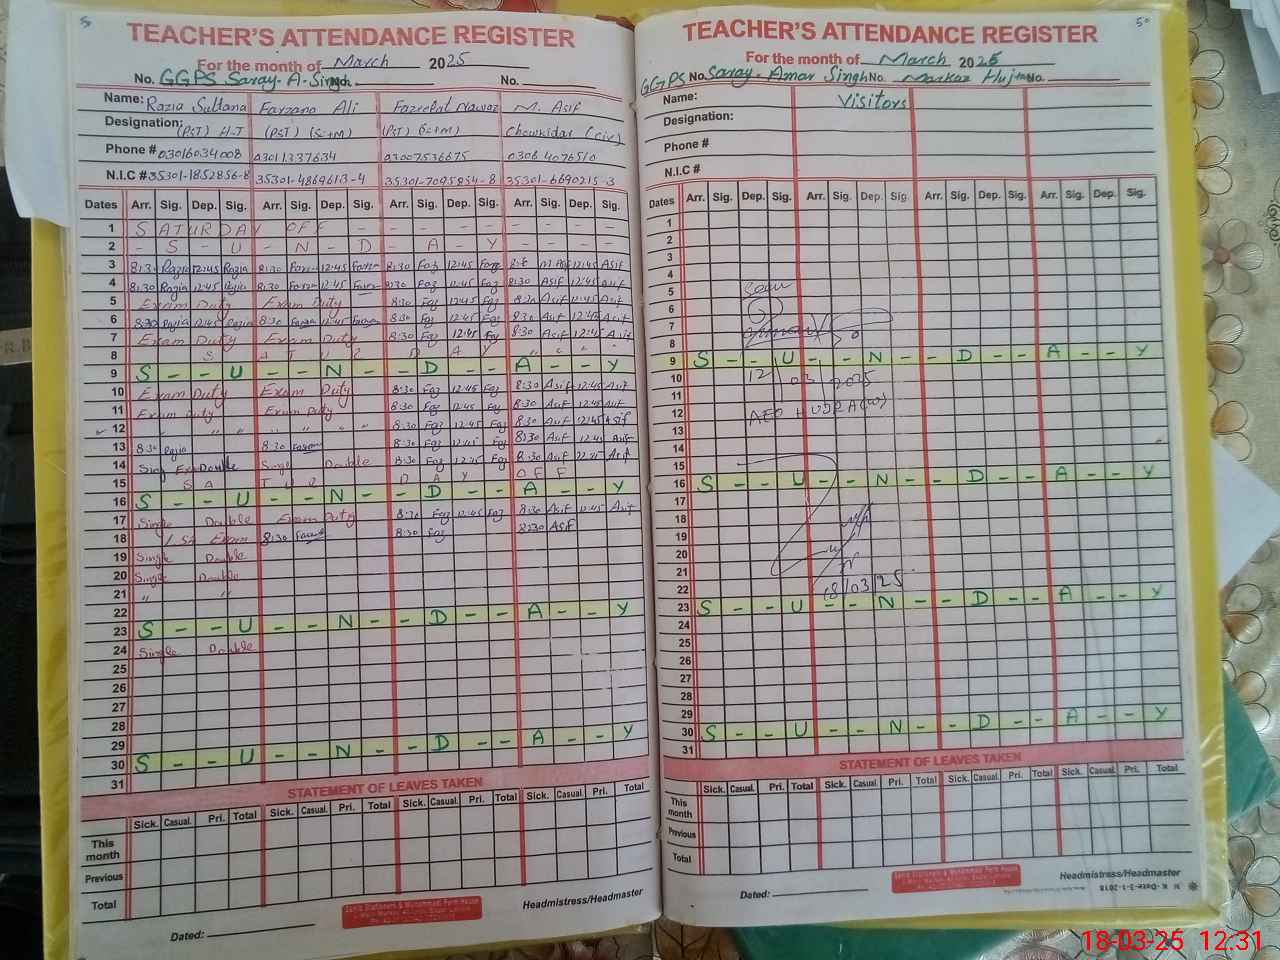 5
TEACHER'S ATTENDANCE REGISTER
For the month of March 2025
No. GGPS Saray. A. Singh No.
Name: Razia Sultana Farzana Ali Nawaz M. Asif
Designation: (PST) H-T (PST) (Sc+M) (PST) (Sc+M) Chowkidar (Civ)
Phone # 03016034008 03011337634 03007536675 0306 4076510
N.I.C # 35301-1852856-8 35301-4869613-4 35301-7095854-8 35301-6690215-3
Dates Arr. Sig. Dep. Sig. Arr. Sig. Dep. Sig. Arr. Sig. Dep. Sig. Arr. Sig. Dep. Sig.
1 S A T U R D A Y O F F - - - - - - - -
2 - S - U - N - D - A - Y
3 8:30 Razia 12:45 Razia 8:30 Farzn 12:45 Farzn 8:30 Faz 12:45 Faz 8:30 M.Asif 12:45 Asif
4 8:30 Razia 12:45 Razia 8:30 Farzn 12:45 Farzn 8:30 Faz 12:45 Faz 8:30 Asif 12:45 Asif
5 Exam Duty Exam Duty 8:30 Faz 12:45 Faz 8:30 Asif 12:45 Asif
6 8:30 Razia 12:45 Razia 8:30 Farzn 12:45 Farzn 8:30 Faz 12:45 Faz 8:30 Asif 12:45 Asif
7 Exam Duty Exam Duty 8:30 Faz 12:45 Faz 8:30 Asif 12:45 Asif
8 S A T U R D A Y " " " "
9 S - - U - - N - - D - - A - - Y
10 Exam Duty Exam Duty 8:30 Faz 12:45 Faz 8:30 Asif 12:45 Asif
11 Exam Duty Exam Duty 8:30 Faz 12:45 Faz 8:30 Asif 12:45 Asif
12 " " " " " " " 8:30 Faz 12:45 Faz 8:30 Asif 12:45 Asif
13 8:30 Razia 8:30 Farzn 8:30 Faz 12:45 Faz 8:30 Asif 12:45 Asif
14 Double Single Double 8:30 Faz 12:45 Faz 8:30 Asif 12:45 Asif
15 S A T U R D A Y O F F
16 S - - U - - N - - D - - A - - Y
17 Single Double Exam Duty 8:30 Faz 12:45 Faz 8:30 Asif 12:45 Asif
18 Exam 8:30 Farzn 8:30 Faz 8:30 Asif
19 Single Double
20 Single Double
21 " "
22
23 S - - U - - N - - D - - A - - Y
24 Single Double
25
26
27
28
29
30 S - - U - - N - - D - - A - - Y
31
STATEMENT OF LEAVES TAKEN
Sick. Casual. Pri. Total Sick. Casual. Pri. Total Sick. Casual. Pri. Total Sick. Casual. Pri. Total
This month
Previous
Total
Headmistress/Headmaster
Dated:
50
TEACHER'S ATTENDANCE REGISTER
For the month of March 2025
GGPS No. Saray. Amar Singh No. Markaz No.
Name: Visitors
Designation:
Phone #
N.I.C #
Dates Arr. Sig. Dep. Sig. Arr. Sig. Dep. Sig. Arr. Sig. Dep. Sig. Arr. Sig. Dep. Sig.
1
2
3
4
5
6
7
8
9 S - - U - - N - - D - - A - - Y
10 12 03 2025
11
12 AEO HUJRA (W)
13
14
15
16 S - - U - - N - - D - - A - - Y
17
18
19
20
21
22 18/03/25
23 S - - U - - N - - D - - A - - Y
24
25
26
27
28
29
30 S - - U - - N - - D - - A - - Y
31
STATEMENT OF LEAVES TAKEN
Sick. Casual. Pri. Total Sick. Casual. Pri. Total Sick. Casual. Pri. Total Sick. Casual. Pri. Total
This month
Previous
Total
Headmistress/Headmaster
Dated:
18-03-25 12:31